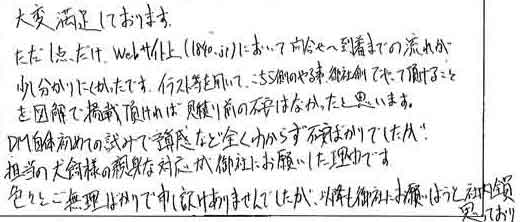 大変満足しております。
ただ1点だけ、Webサイト上(1840.jp)において問合せ〜到着までの流れが
少し分かりにくかったです。イラスト等を用いて、こちら側のやる事、御社側でやって頂けること
を図解で掲載頂ければ見積り前の不安はなかったと思います。
DM自体初めての試みで など全くわからず不安ばかりでしたが、
担当の犬飼様の親身な対応が御社にお願いした理由です
色々とご無理ばかりで申し訳ありませんでしたが、以降も御社にお願いしようと社内全員
思っており